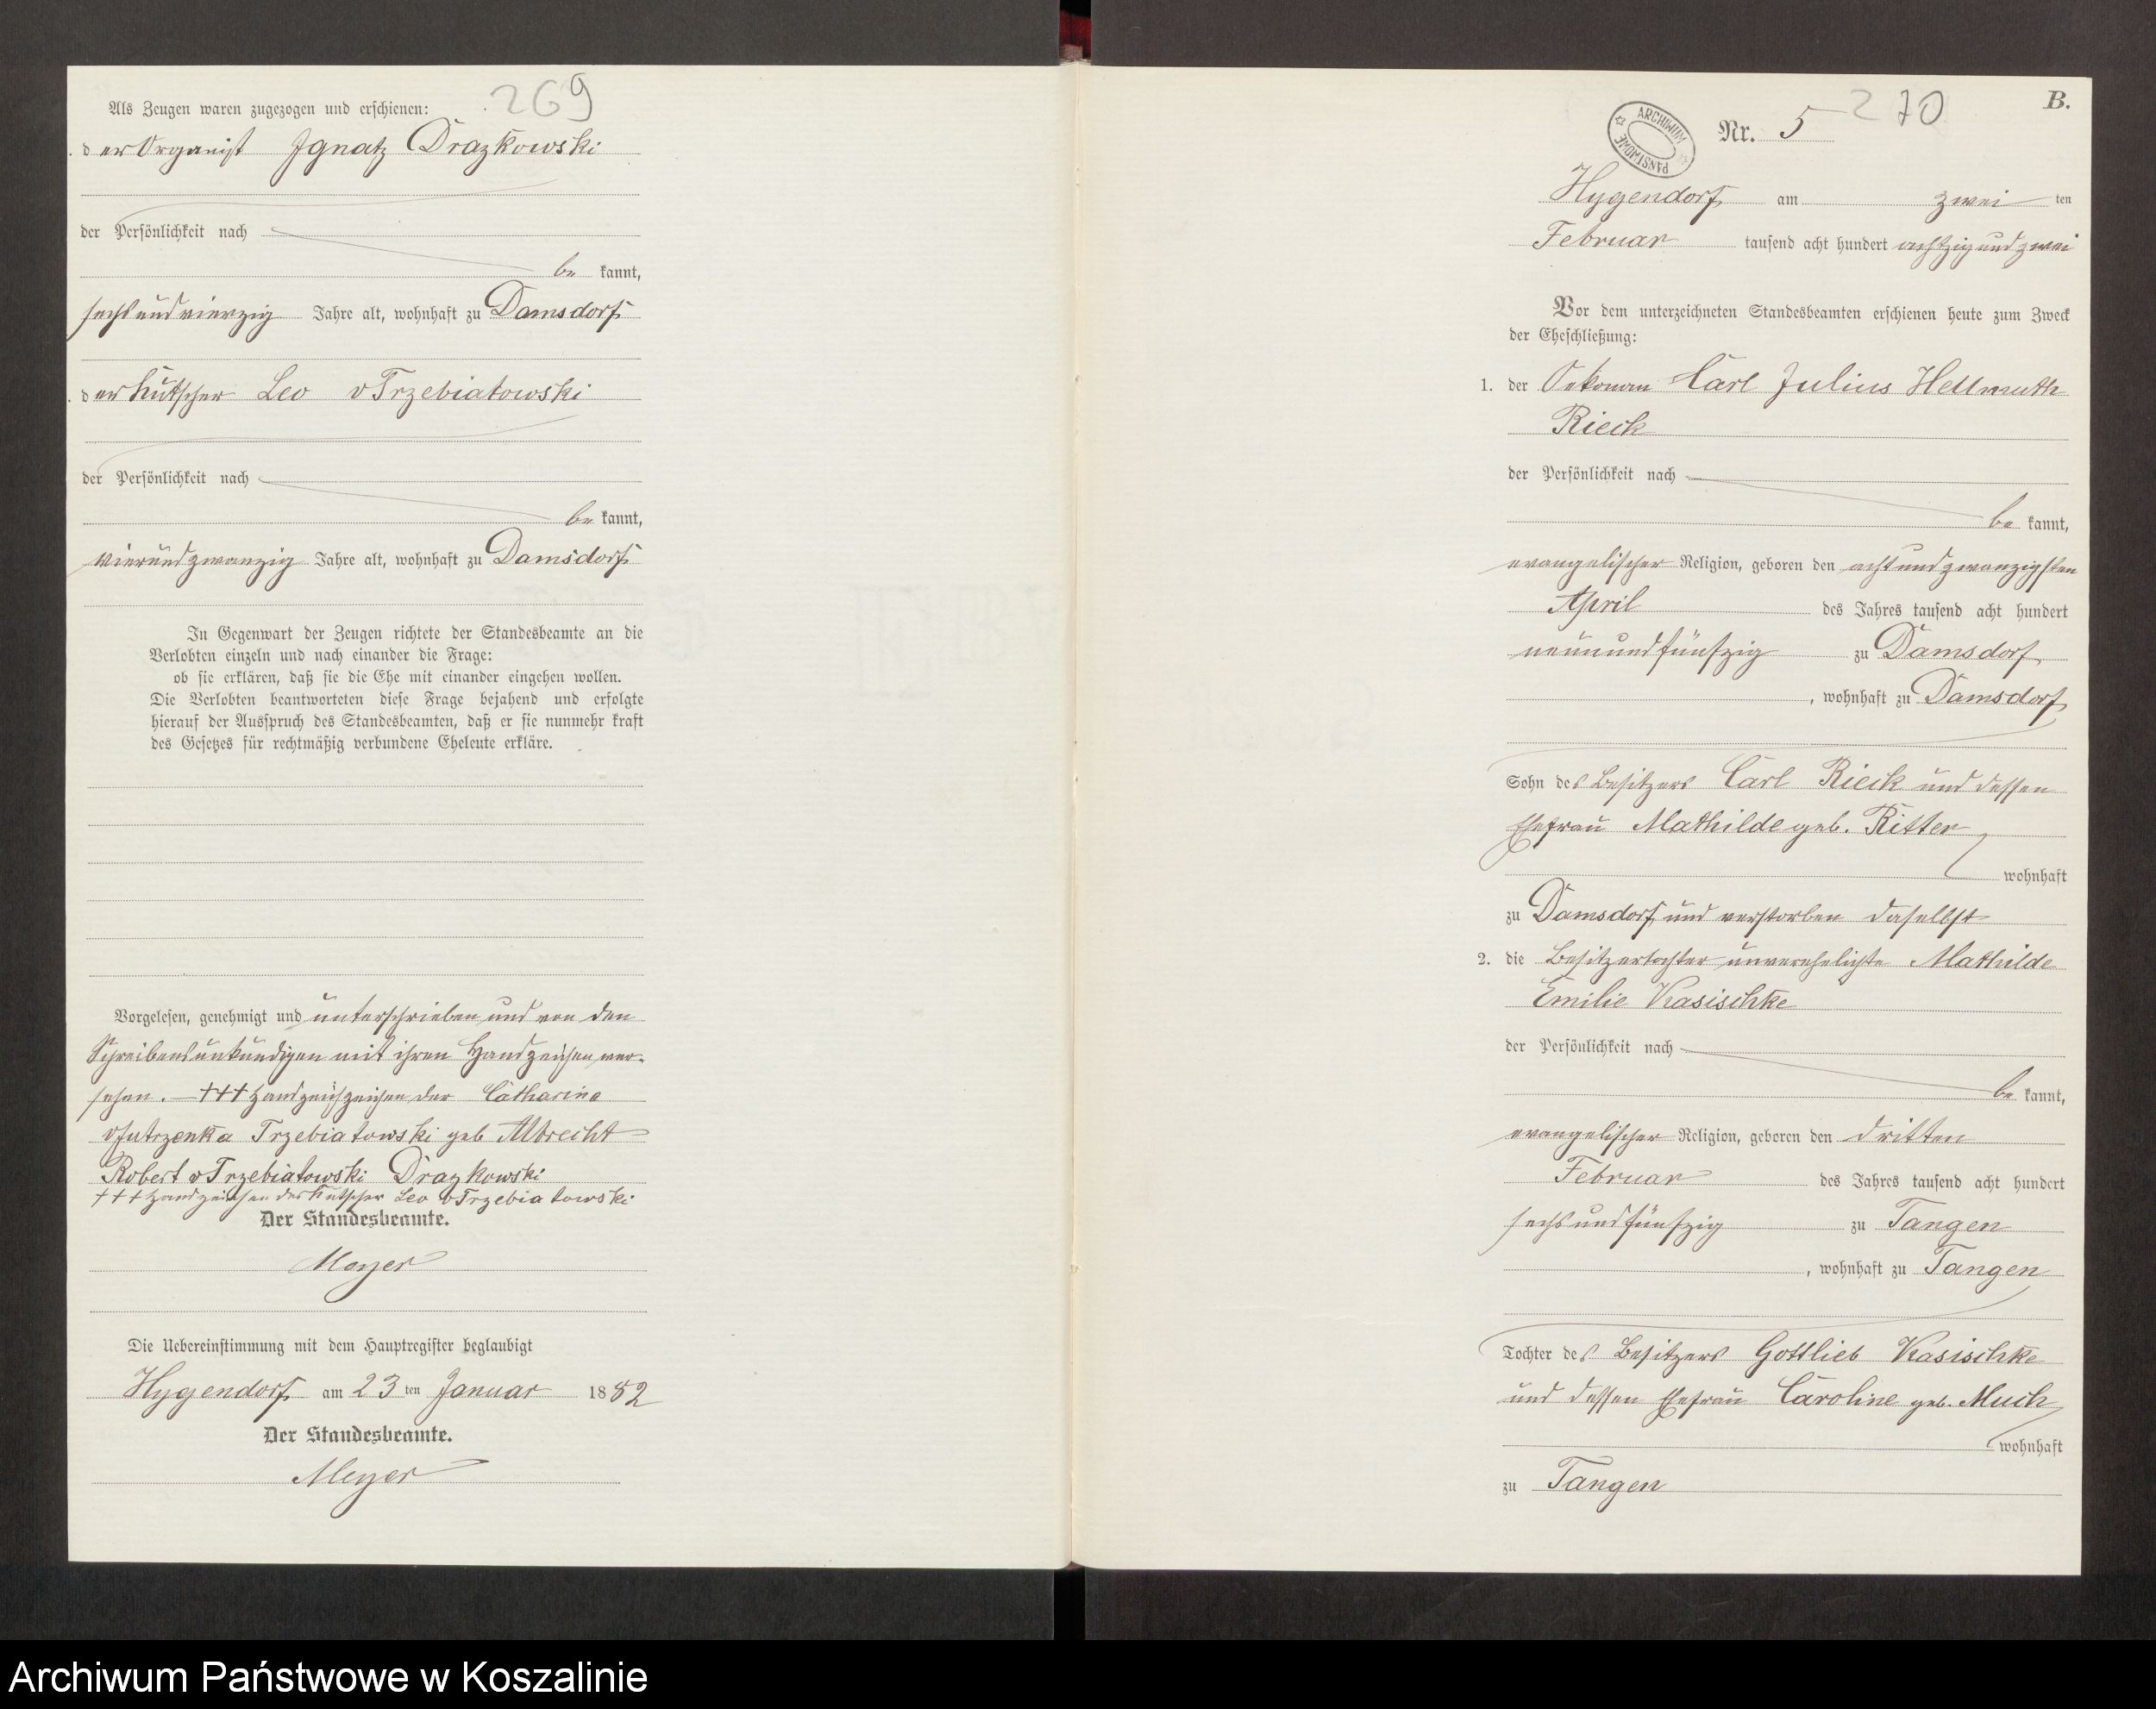 269
Als Zeugen waren zugezogen und erschienen:
der Organist Ignatz Drazkowski
der Persönlichkeit nach
be kannt,
sechsundvierzig Jahre alt, wohnhaft zu Damsdorf
der Kutscher Leo v Trzebiatowski
der Persönlichkeit nach
be kannt,
vierundzwanzig Jahre alt, wohnhaft zu Damsdorf
In Gegenwart der Zeugen richtete der Standesbeamte an die
Verlobten einzeln und nach einander die Frage:
ob sie erklären, daß sie die Ehe mit einander eingehen wollen.
Die Verlobten beantworteten diese Frage bejahend und erfolgte
hierauf der Ausspruch des Standesbeamten, daß er sie nunmehr kraft
des Gesetzes für rechtmäßig verbundene Eheleute erkläre.
Vorgelesen, genehmigt und unterschrieben und von den
Schreibensunkundigen mit ihren Handzeichen ver-
sehen. — +++ der Catharina
v Jutrzenka Trzebiatowski geb Albrecht
Robert v Trzebiatowski Drazkowski
+++ Handzeichen des Kutscher Leo v Trzebiatowski
Der Standesbeamte.
Meyer
Die Uebereinstimmung mit dem Hauptregister beglaubigt
Hygendorf am 23 ten Januar 1882
Der Standesbeamte.
Meyer
B.
270
ARCHIWUM PAŃSTWOWE
Nr. 5
Hygendorf am zwei ten
Februar tausend acht hundert achtzig und zwei
Vor dem unterzeichneten Standesbeamten erschienen heute zum Zweck
der Eheschließung:
1. der Oekonom Carl Julius Hellmuth
Rieck
der Persönlichkeit nach
be kannt,
evangelischer Religion, geboren den achtundzwanzigsten
April des Jahres tausend acht hundert
neunundfünfzig zu Damsdorf
, wohnhaft zu Damsdorf
Sohn des Besitzers Carl Rieck und dessen
Ehefrau Mathilde geb. Ritter
wohnhaft
zu Damsdorf und verstorben daselbst
2. die Besitzertochter unverehelichte Mathilde
Emilie Kasischke
der Persönlichkeit nach
be kannt,
evangelischer Religion, geboren den dritten
Februar des Jahres tausend acht hundert
sechsundfünfzig zu Tangen
, wohnhaft zu Tangen
Tochter des Besitzers Gottlieb Kasischke
und dessen Ehefrau Caroline geb. Much
wohnhaft
zu Tangen
Archiwum Państwowe w Koszalinie